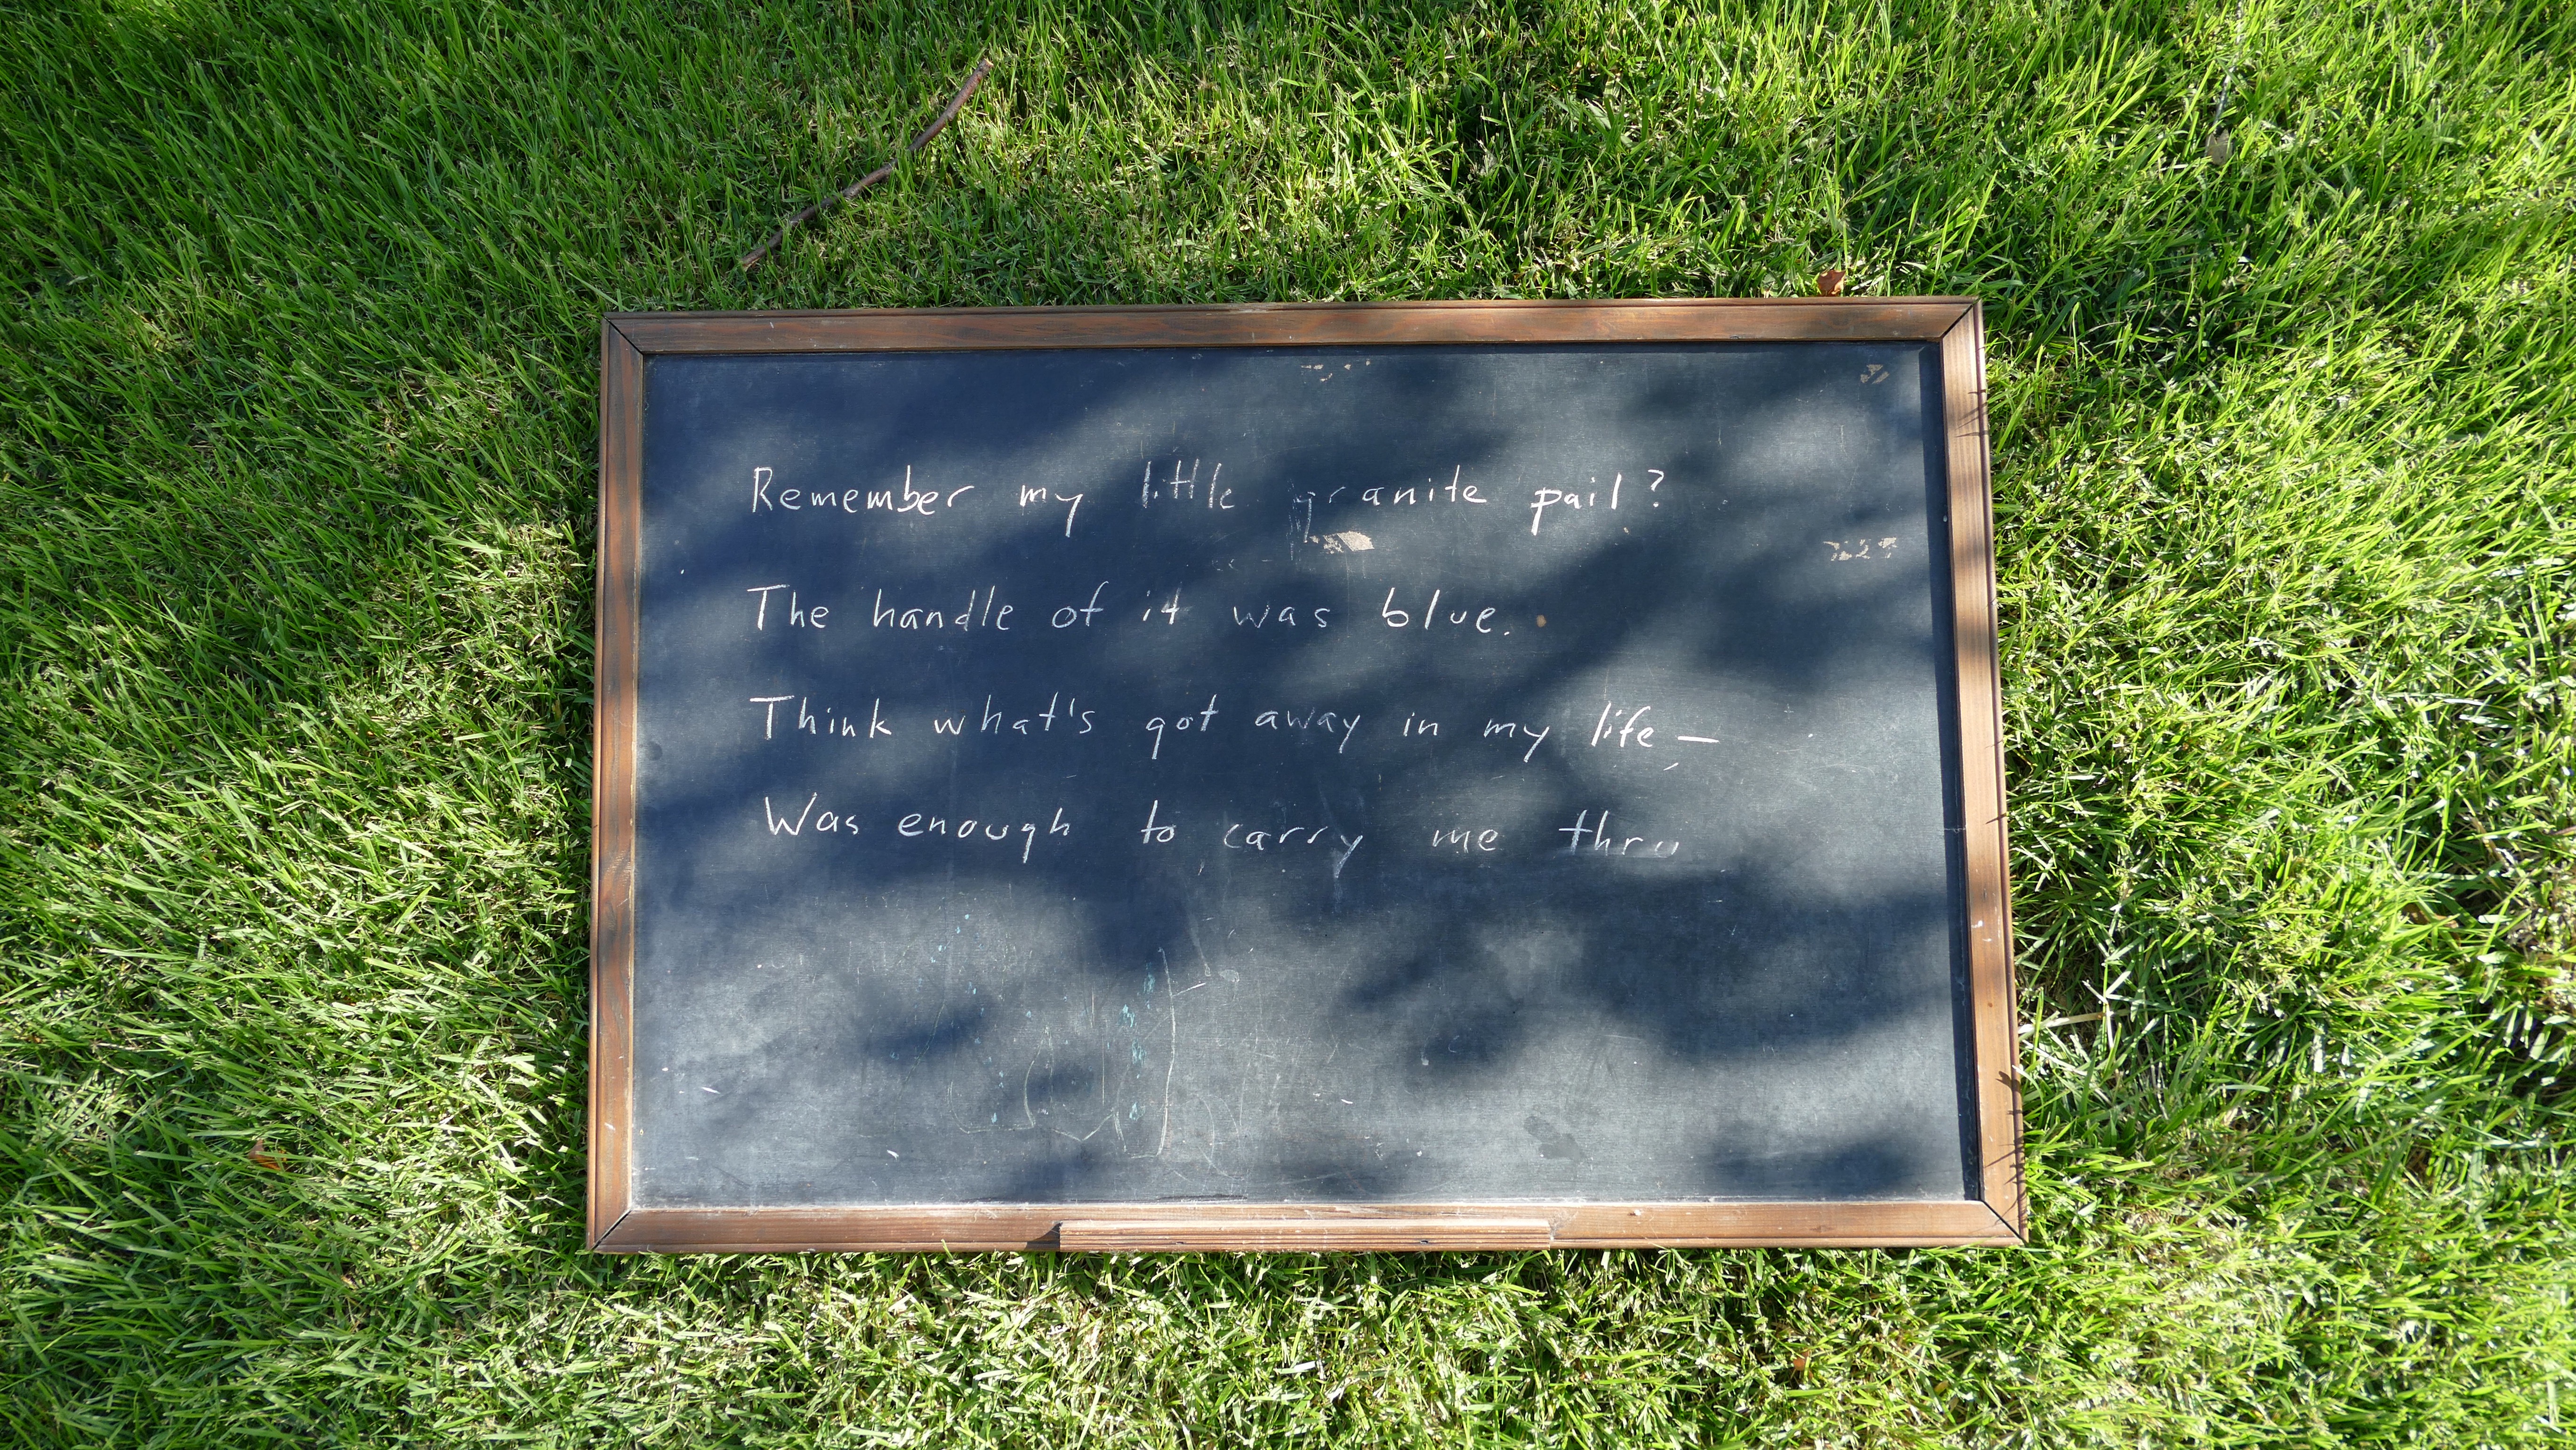 Remember my little granite pail?
The handle of it was blue.
Think what's got away in my life —
Was enough to carry me thru